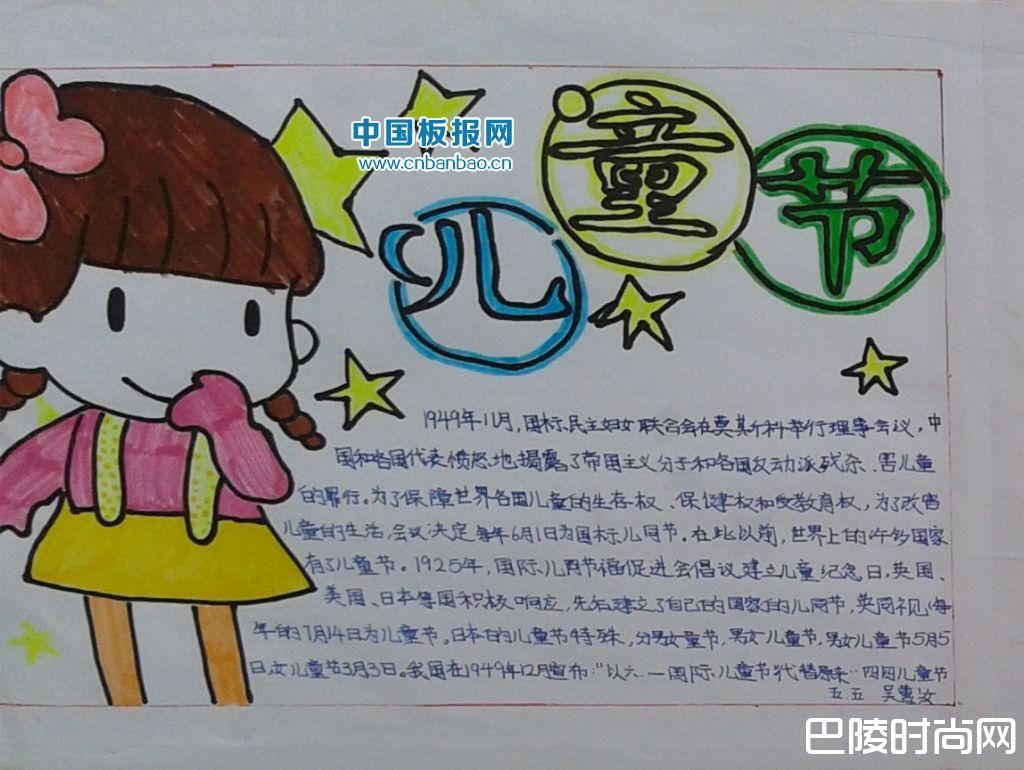 中国板报网
www.cnbanbao.cn
儿童节
1949年11月,国标民主妇女联合会在莫其斤科举行理事会议,中
国和各国代表愤怒地揭露了帝国主义分子和各国反动派残杀、害儿童
的罪行。为了保障世界各国儿童的生存权、保健权和受教育权,为了改善
儿童的生活,会议决定每年6月1日为国标儿同节。在此以前,世界上的许多国家
有了儿童节。1925年,国际儿同节福促进会倡议建立儿童纪念日,英国、
美国、日本等国积极响应,先后建立了自己的国家的儿同节,英同视(每
年的7月14日为儿童节。日本的儿童节特殊,分男女童节,男女儿童节,男女儿童节5月5
日,女儿童节3月3日。我国在1949年12月宣布:“以六.一国际儿童节代替原来”四四儿童节
五.五 吴
巴陵时尚网